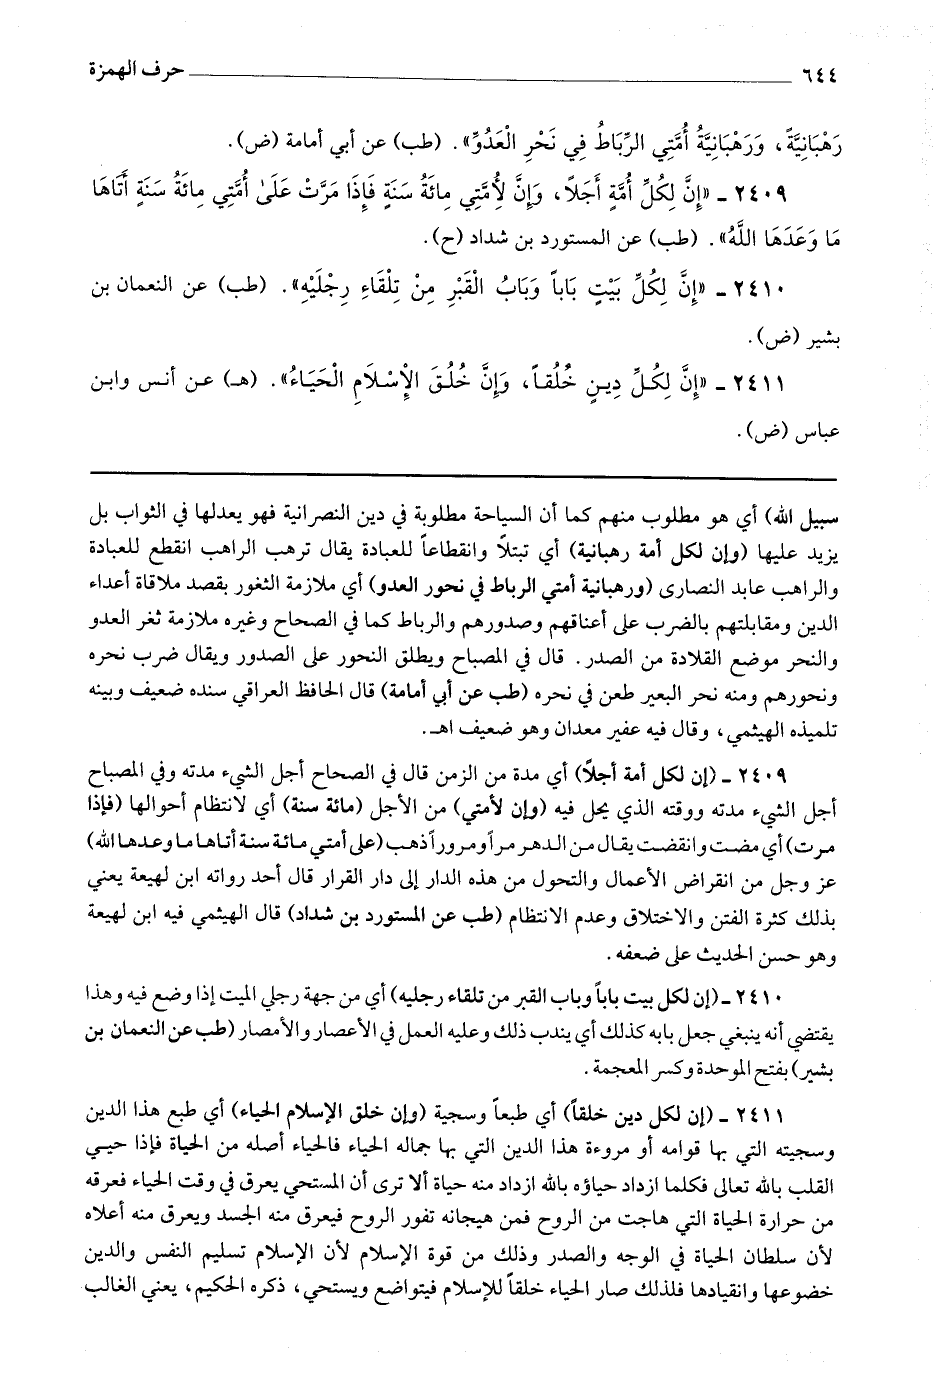 ٦٤٤ حرف الهمزة
رَهْبَانِيَّةً، وَرَهْبَانِيَّةُ أُمَّتِي الرِّبَاطُ فِي نَحْرِ الْعَدُوِّ». (طب) عن أبي أمامة (ض).
٢٤٠٩ ـ «إِنَّ لِكُلِّ أُمَّةٍ أَجَلاً، وَإِنَّ لِأُمَّتِي مِائَةُ سَنَةٍ فَإِذَا مَرَّتْ عَلَىٰ أُمَّتِي مِائَةُ سَنَةٍ أَتَاهَا
مَا وَعَدَهَا اللَّهُ». (طب) عن المستورد بن شداد (ح).
٢٤١٠ ـ «إِنَّ لِكُلِّ بَيْتٍ بَاباً وَبَابُ الْقَبْرِ مِنْ تِلْقَاءِ رِجْلَيْهِ». (طب) عن النعمان بن
بشير (ض).
٢٤١١ ـ «إِنَّ لِكُلِّ دِينٍ خُلُقاً، وَإِنَّ خُلُقَ الْإِسْلَامِ الْحَيَاءُ». (هـ) عن أنس وابن
عباس (ض).
سبيل الله) أي هو مطلوب منهم كما أن السياحة مطلوبة في دين النصرانية فهو يعدلها في الثواب بل
يزيد عليها (وإن لكل أمة رهبانية) أي تبتلاً وانقطاعاً للعبادة يقال ترهب الراهب انقطع للعبادة
والراهب عابد النصارى (ورهبانية أمتي الرباط في نحور العدو) أي ملازمة الثغور بقصد ملاقاة أعداء
الدين ومقابلتهم بالضرب على أعناقهم وصدورهم والرباط كما في الصحاح وغيره ملازمة ثغر العدو
والنحر موضع القلادة من الصدر. قال في المصباح ويطلق النحور على الصدور ويقال ضرب نحره
ونحورهم ومنه نحر البعير طعن في نحره (طب عن أبي أمامة) قال الحافظ العراقي سنده ضعيف وبينه
تلميذه الهيثمي، وقال فيه عفير معدان وهو ضعيف اهـ.
٢٤٠٩ ـ (إن لكل أمة أجلاً) أي مدة من الزمن قال في الصحاح أجل الشيء مدته وفي المصباح
أجل الشيء مدته ووقته الذي يحل فيه (وإن لأمتي) من الأجل (مائة سنة) أي لانتظام أحوالها (فإذا
مرت) أي مضت وانقضت يقال من الدهر مراً ومروراً ذهب (على أمتي مائة سنة أتاها ما وعدها الله)
عز وجل من انقراض الأعمال والتحول من هذه الدار إلى دار القرار قال أحد رواته ابن لهيعة يعني
بذلك كثرة الفتن والاختلاق وعدم الانتظام (طب عن المستورد بن شداد) قال الهيثمي فيه ابن لهيعة
وهو حسن الحديث على ضعفه.
٢٤١٠ ـ (إن لكل بيت باباً وباب القبر من تلقاء رجليه) أي من جهة رجلي الميت إذا وضع فيه وهذا
يقتضي أنه ينبغي جعل بابه كذلك أي يندب ذلك وعليه العمل في الأعصار والأمصار (طب عن النعمان بن
بشير) بفتح الموحدة وكسر المعجمة.
٢٤١١ ـ (إن لكل دين خلقاً) أي طبعاً وسجية (وإن خلق الإسلام الحياء) أي طبع هذا الدين
وسجيته التي بها قوامه أو مروءة هذا الدين التي بها جماله الحياء فالحياء أصله من الحياة فإذا حيـي
القلب بالله تعالى فكلما ازداد حياؤه بالله ازداد منه حياة ألا ترى أن المستحي يعرق في وقت الحياء فعرقه
من حرارة الحياة التي هاجت من الروح فمن هيجانه تفور الروح فيعرق منه الجسد ويعرق منه أعلاه
لأن سلطان الحياة في الوجه والصدر وذلك من قوة الإسلام لأن الإسلام تسليم النفس والدين
خضوعها وانقيادها فلذلك صار الحياء خلقاً للإسلام فيتواضع ويستحي، ذكره الحكيم، يعني الغالب